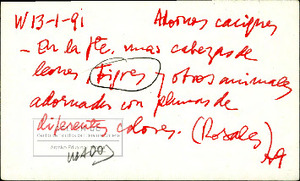 W13-1-91 Adornos caciques
- En la fte. unas cabezas de
leones, tigres y otros animales
adornadas con plumas de
diferentes colores. (Rosales)